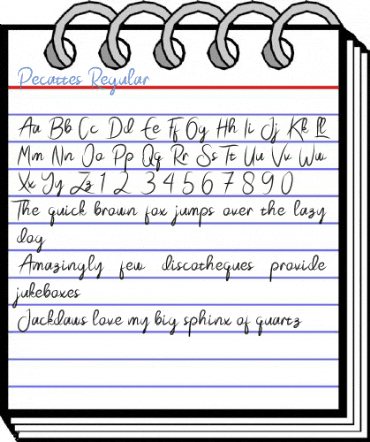 Pecattes Regular
Aa Bb Cc Dd Ee Ff Gg Hh Ii Jj Kk Ll
Mm Nn Oo Pp Qq Rr Ss Tt Uu Vv Ww
Xx Yy Zz 1 2 3 4 5 6 7 8 9 0
The quick brown fox jumps over the lazy
dog
Amazingly few discotheques provide
jukeboxes
Jackdaws love my big sphinx of quartz